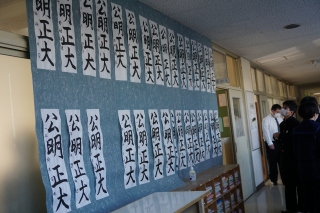 明正大
公明正大
公明正大
公明正大
公明正大
公明正大
公明正大
公明正大
公明正大
公明正大
公明正大
公明正大
公明正大
公明正大
公明正大
公明正大
公明正大
公明正大
公明正大
公明正大
公明正大
公明正大